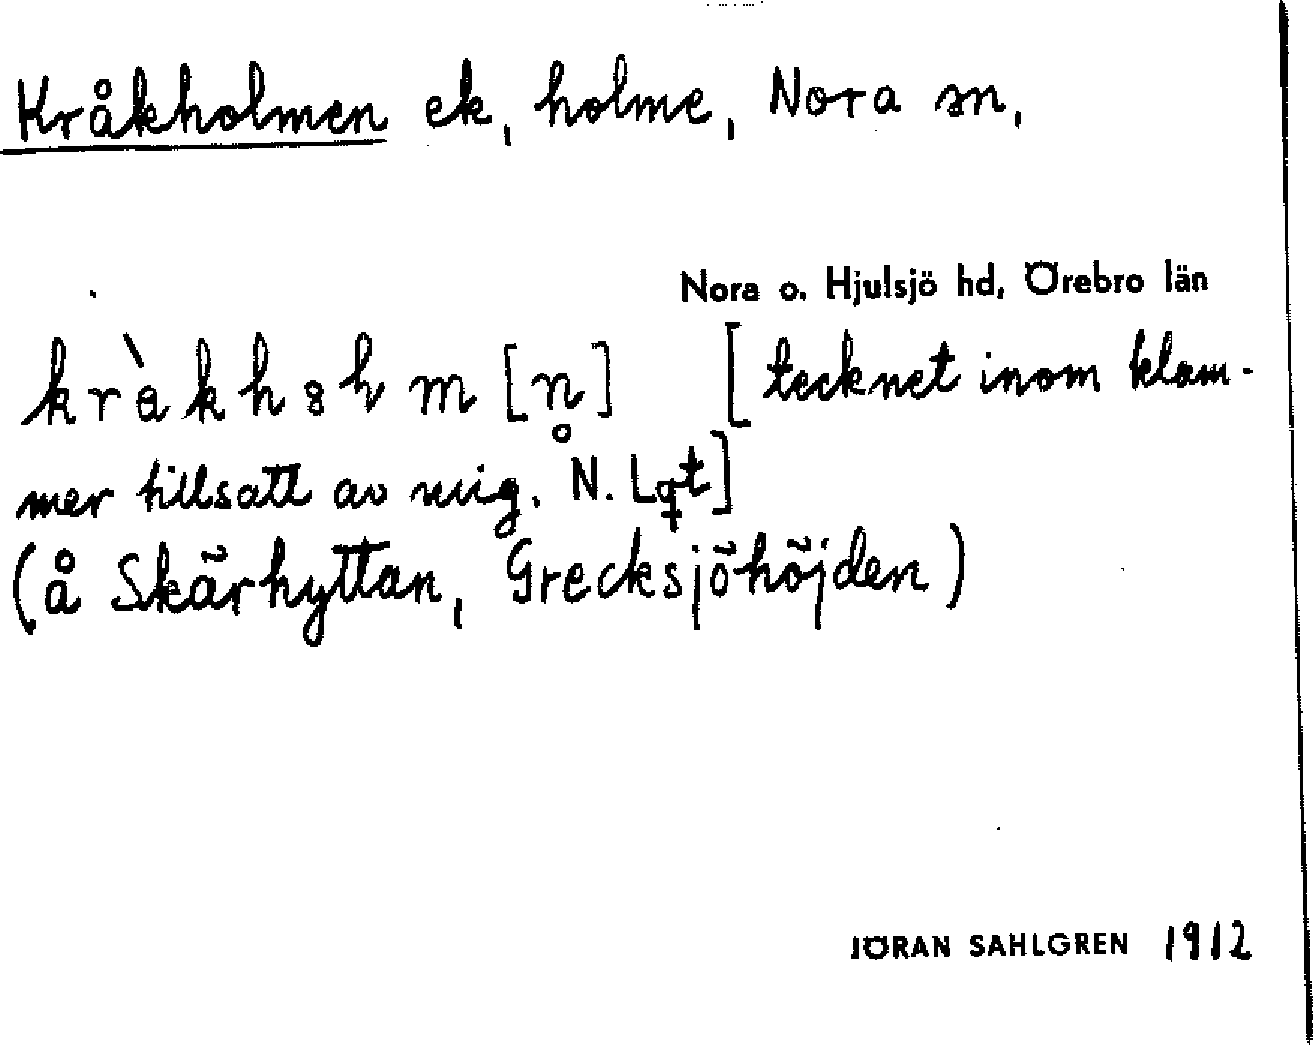 Kråkholmen ek, holme, Nora sn,
Nora o. Hjulsjö hd, Örebro län
[tecknet inom klam-
mer tillsatt av mig. N. Lqt]
(å Skärhyttan, Grecksjöhöjden)
JÖRAN SAHLGREN 1912